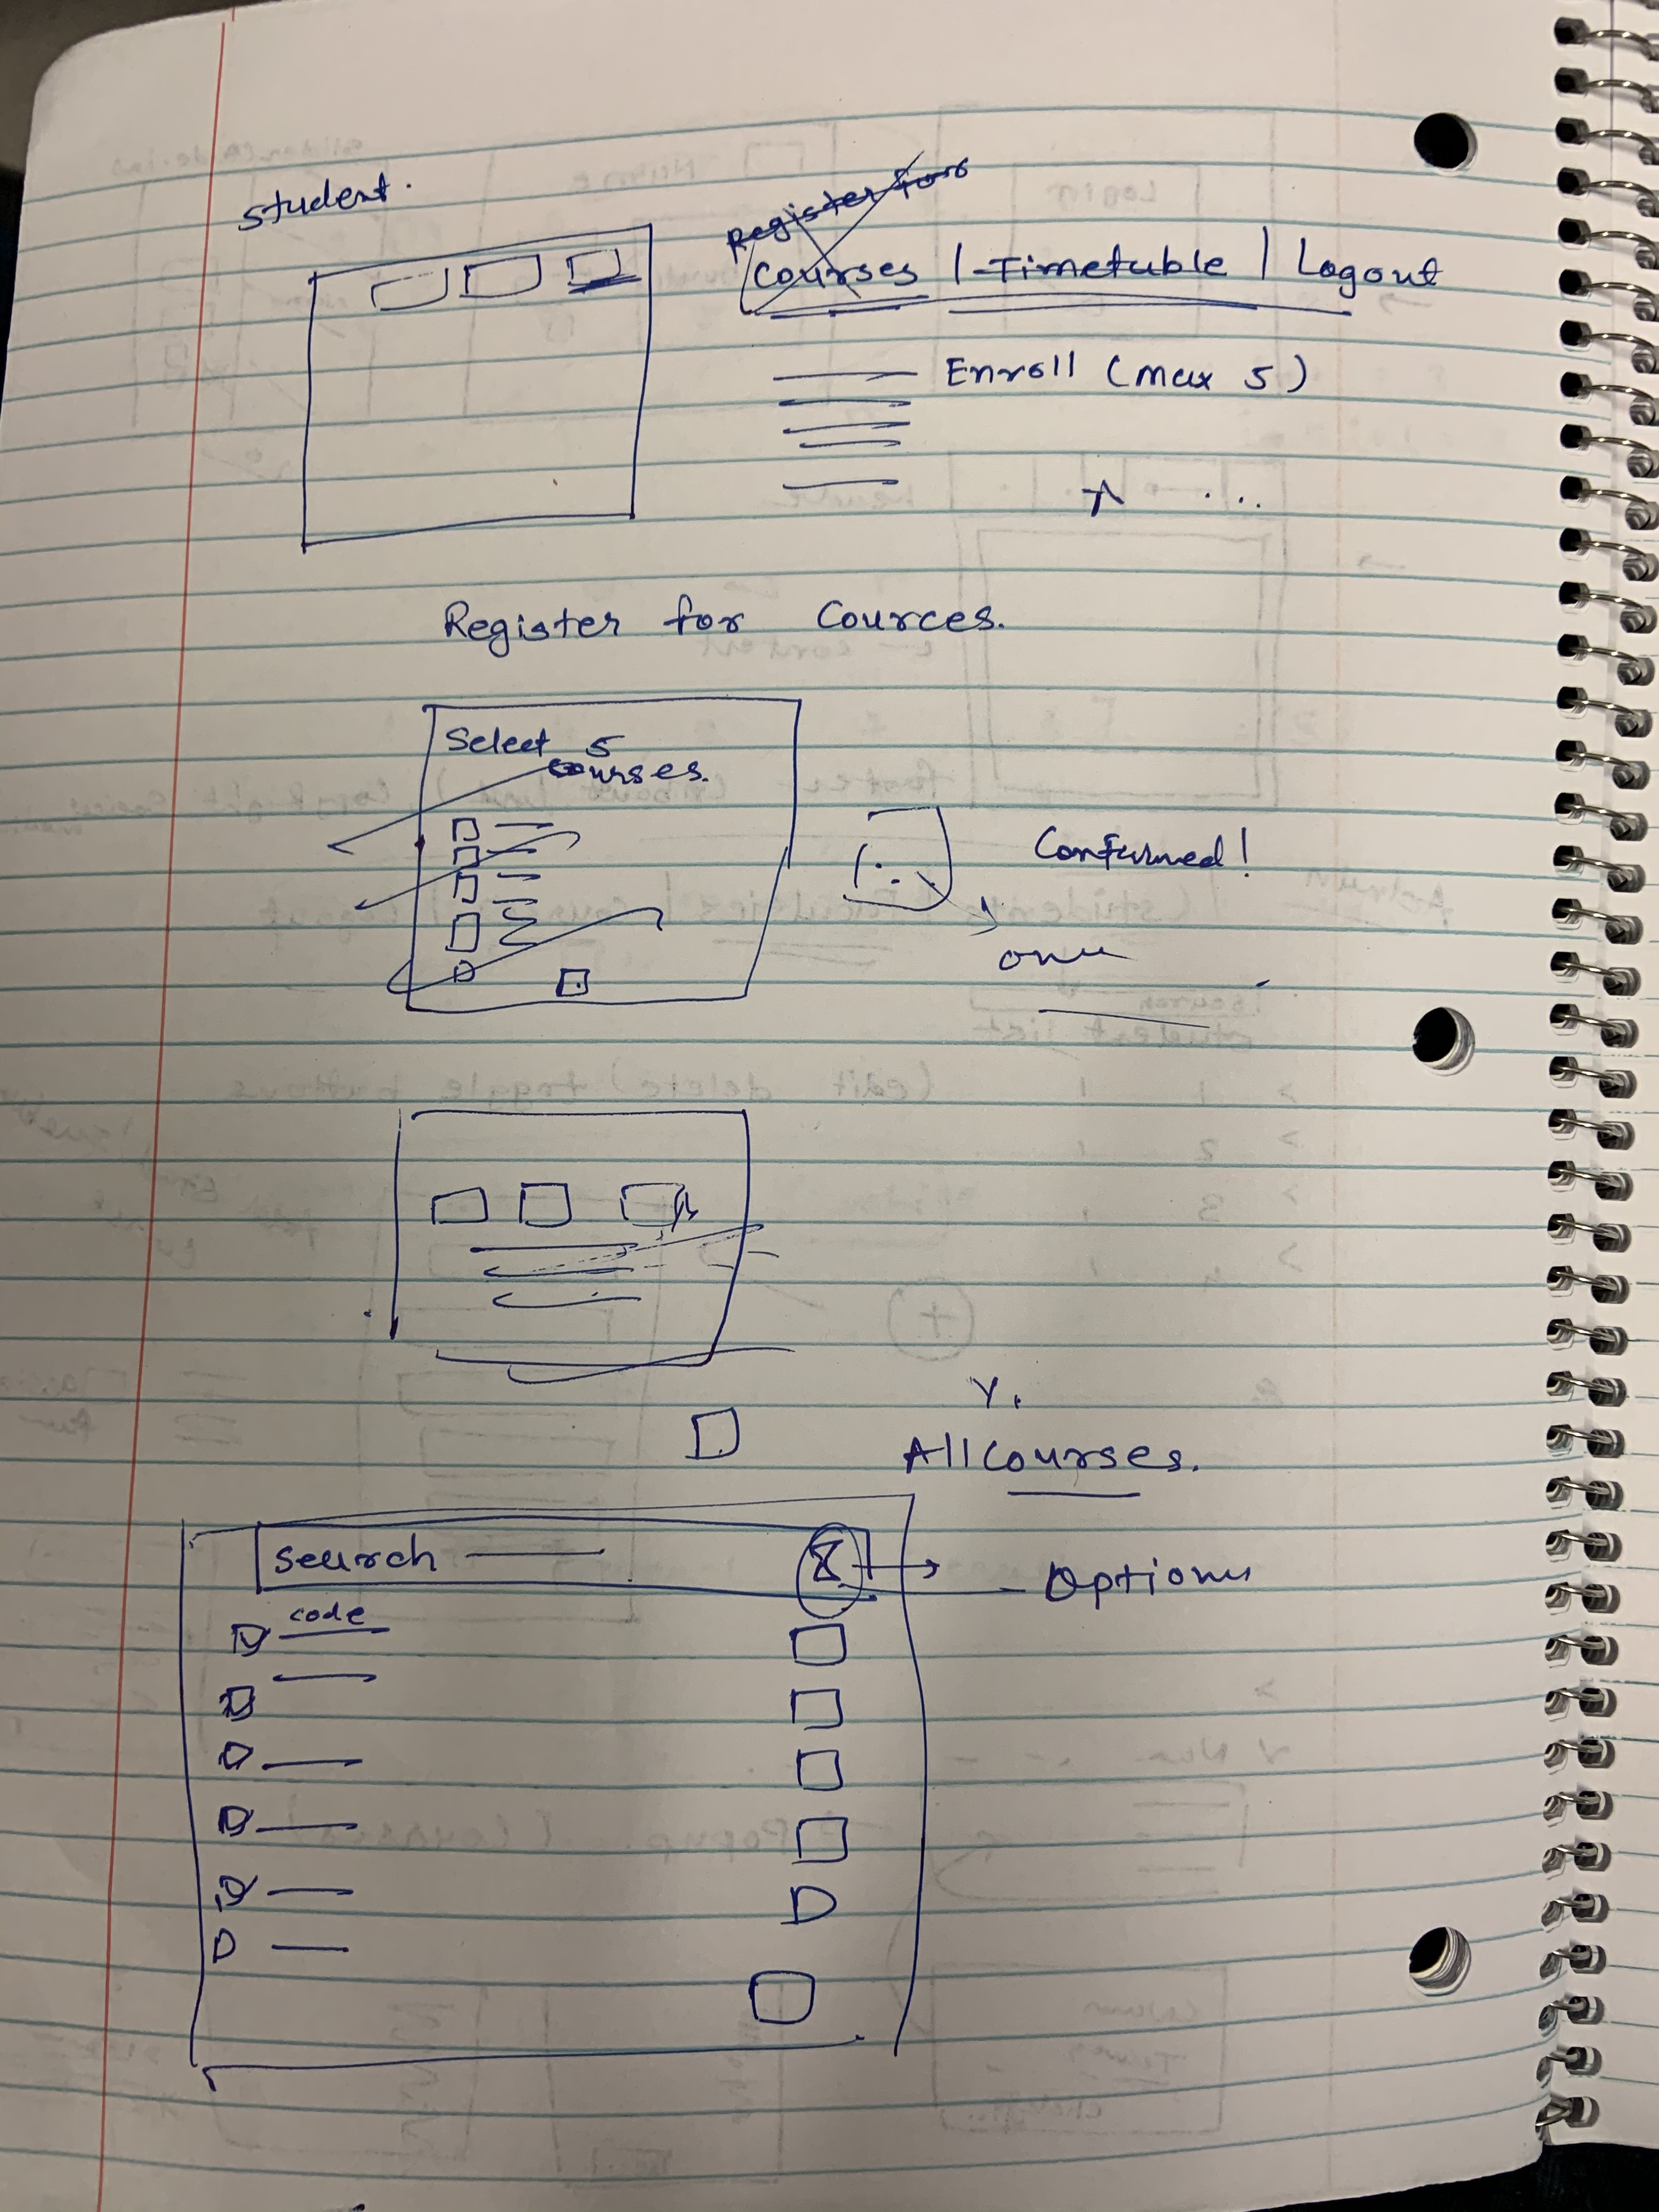 Student.
Register for
Courses | Timetable | Logout
Enroll (max 5)
Register for Cources.
Select 5
courses.
Confirmed!
All Courses.
search
Options
code